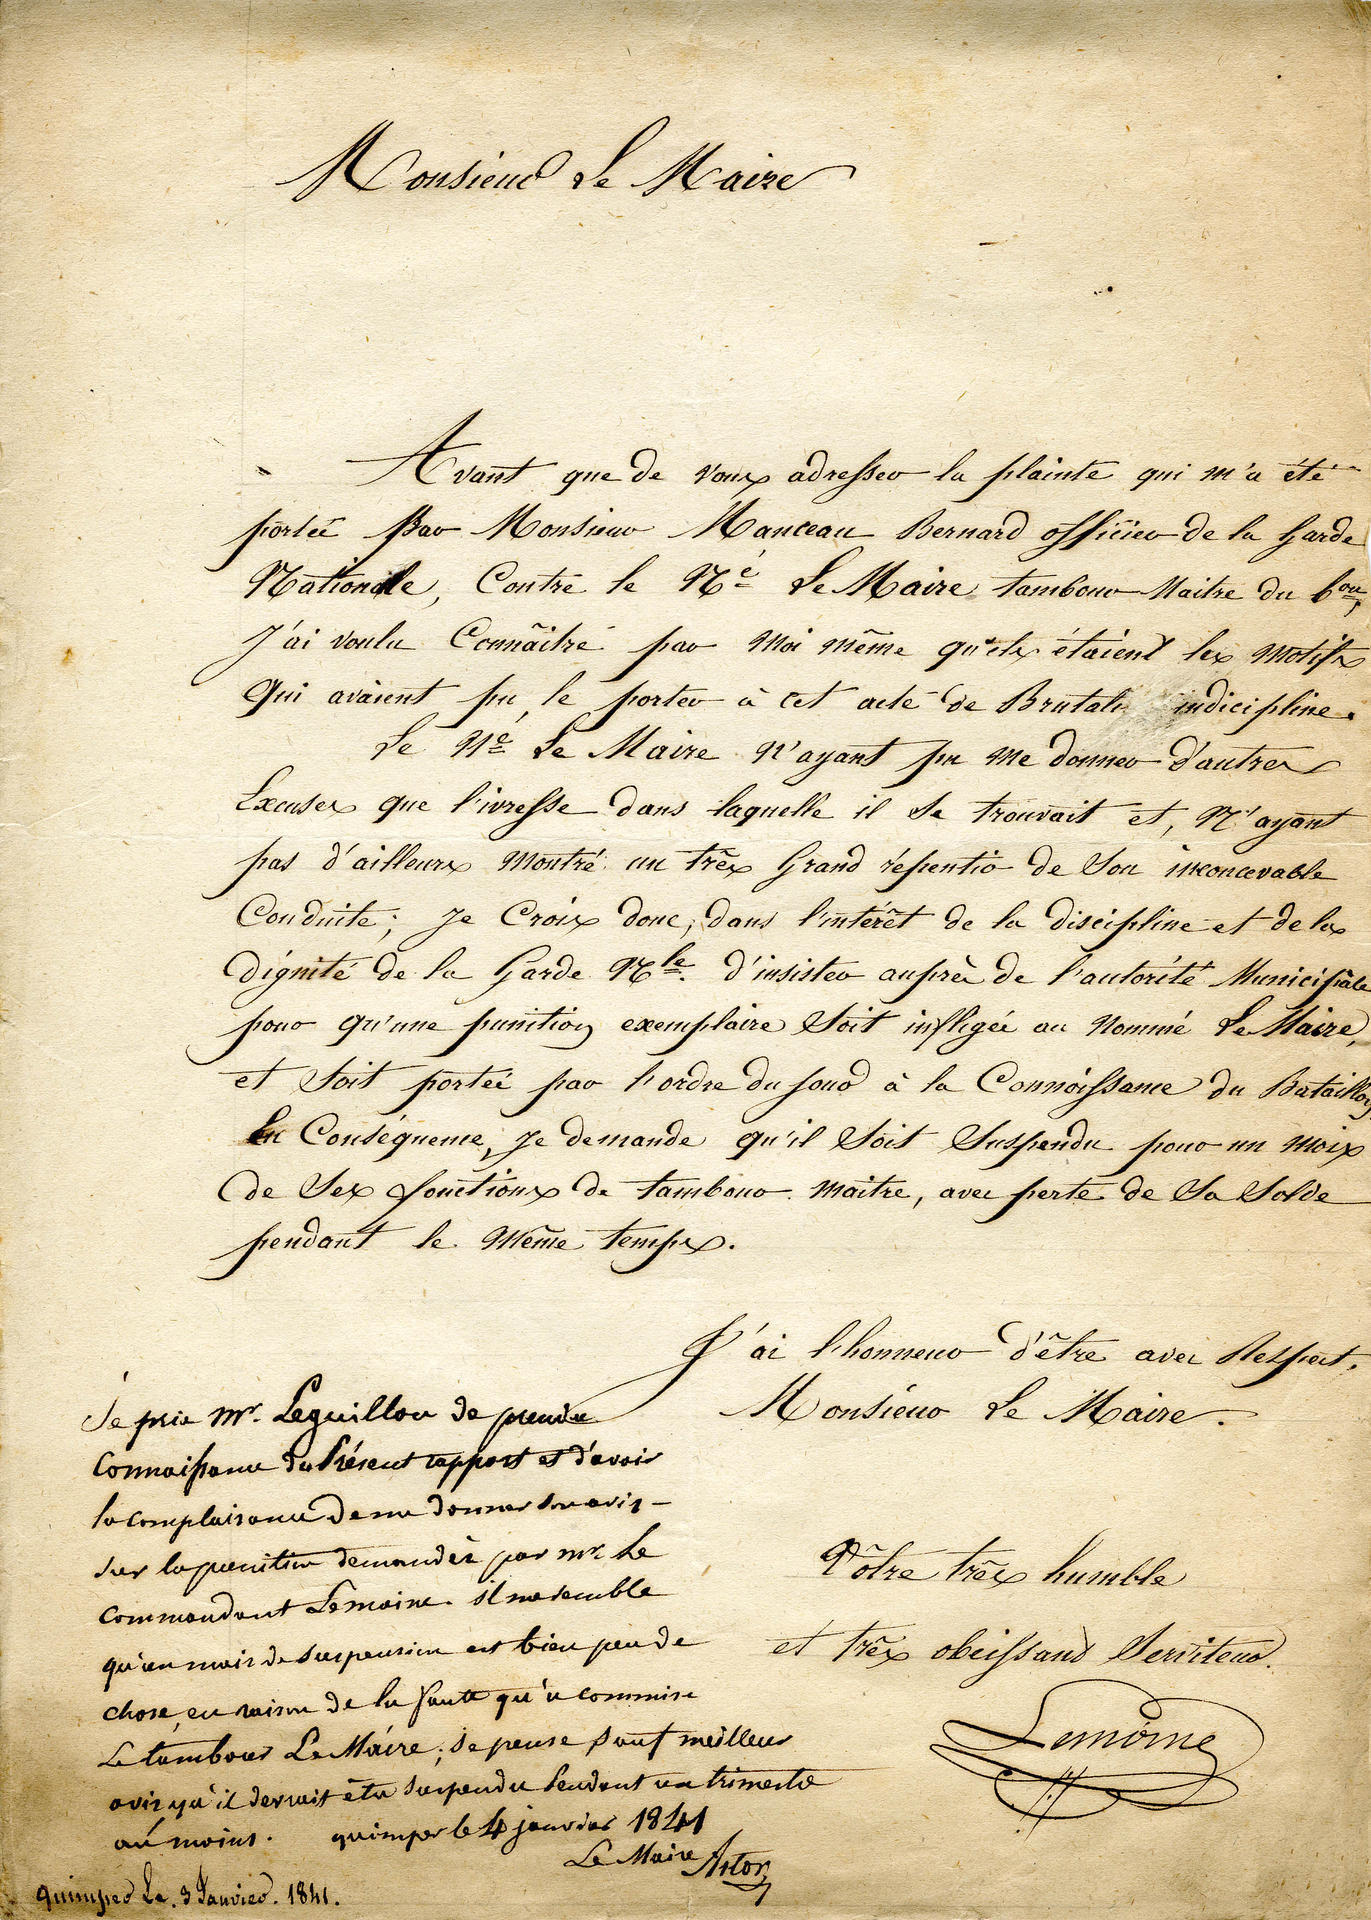 Monsieur Le Maire
Avant que de vous adresser la plainte qui m'a été
portée Par Monsieur Manceau Bernard officier de la Garde
Nationale, Contre le Né Le Maire tambour Maitre du bon,
J'ai voulu Connâitre par moi même quels étaient les motifs
Qui avaient pu le porter à cet acte de Brutale indicipline.
Le Né Le Maire N'ayant pu me donner d'autres
Excuses que l'ivresse dans laquelle il se trouvait et, N'ayant
pas d'ailleurs montré un três Grand répentir de Son inconcevable
Conduite; Je Crois donc, dans l'intérêt de la discipline et de la
dignité de la Garde Nle. d'insister auprès de l'autorité Municipâle
pour qu'une punition exemplaire Soit infligée au Nommé Le Maire,
et Soit portée par l'ordre du jour à la Connoissance du Bataillon
En Conséquence, Je demande qu'il Soit Suspendu pour un mois
de Ses fonctions de tambour maître, avec perte de Sa Solde
pendant le même temps.
J'ai l'honneur d'être avec Respect.
Monsieur Le Maire.
Vôtre três humble
et três obéissand Serviteur.
Lemoine
Je prie mr. Leguillou de prendre
connaissance du Présent rapport et d'avoir
la complaisance de me donner son avis
sur la punition demandée par mr. Le
commandant Lemoine. il me semble
qu'un mois de suspension est bien peu de
chose en raison de la faute qu'a commise
Le tambour Le Maire; je pense sauf meilleur
avis qu'il devrait être suspendu Pendant un trimestre
au moins. quimper le 4 janvier 1841
Le Maire Astor
Quimper Le. 3 Janvier. 1841.